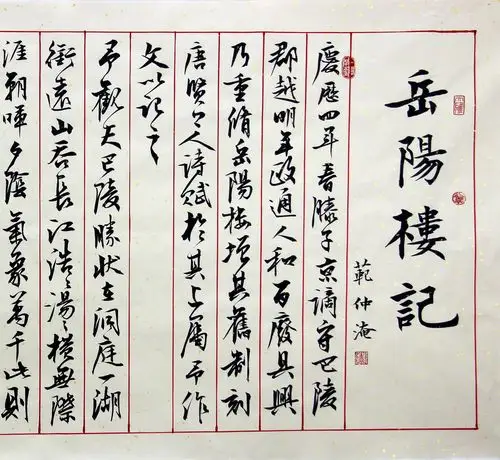 岳陽樓記
範仲淹
慶曆四年春滕子京謫守巴陵
郡越明年政通人和百廢具興
乃重脩岳陽樓增其舊制刻
唐賢今人詩賦於其上屬予作
文以記之
予觀夫巴陵勝狀在洞庭一湖
銜遠山吞長江浩〻湯〻橫無際
涯朝暉夕陰氣象萬千此則